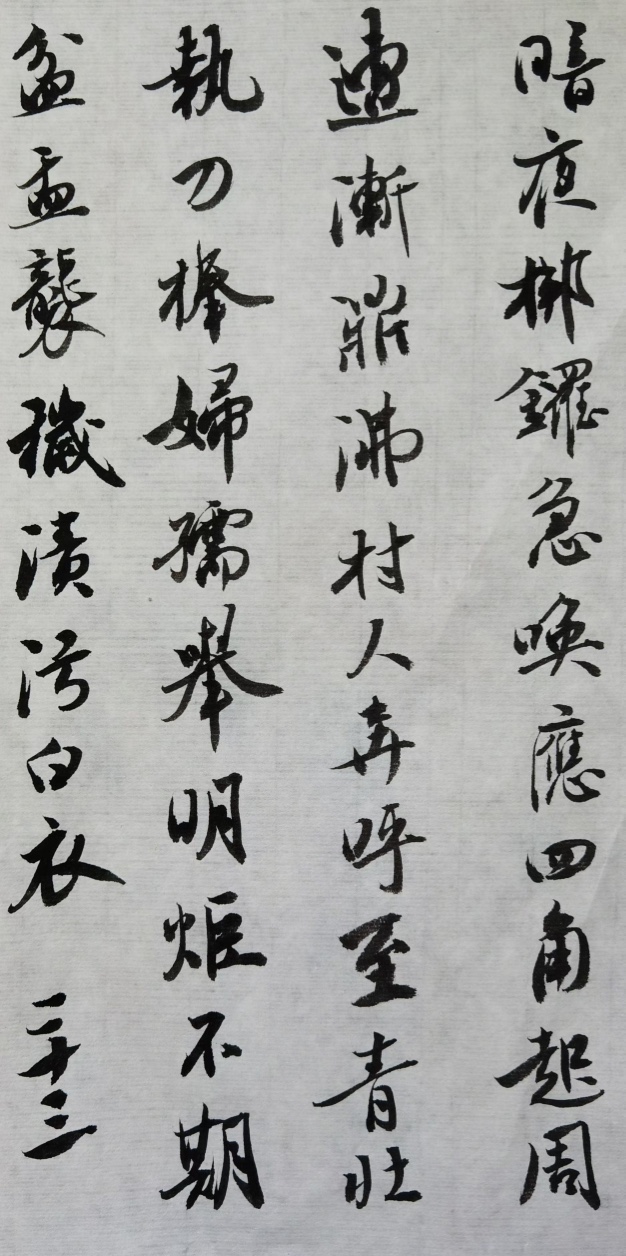 暗夜梆鑼急喚應四角起周
遭漸鼎沸村人奔呼至青壯
執刀棒婦孺舉明炬不期
盆盂襲穢漬污白衣 二十三